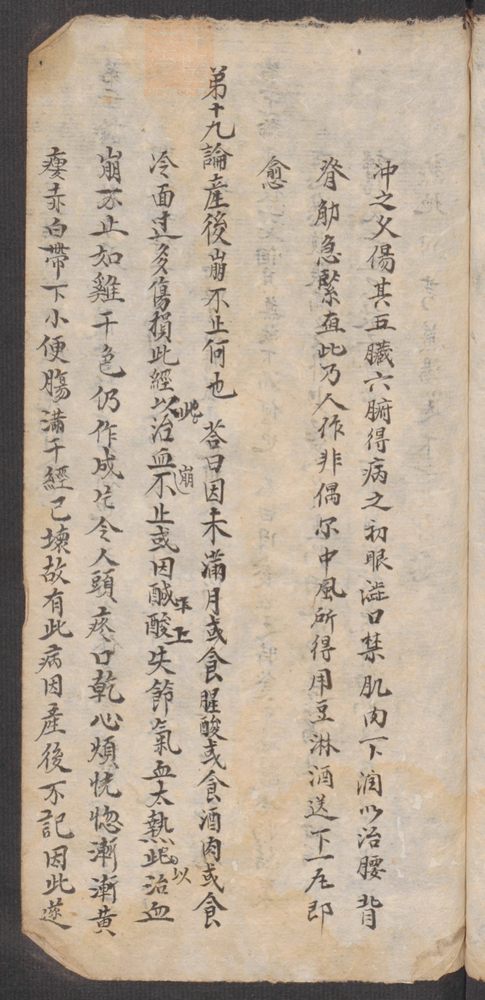 冲之久傷其五臟六腑得病之初眼澁口禁肌肉下润以治腰背
脊筋急緊直此乃人作非偶尔中風所得用豆淋酒送下一尢即
愈
弟十九論産後崩不止何也 荅曰因未滿月或食腥酸或食酒肉或食
冷面过多傷損此經以此治血崩不止或因醎酸不止失節氣血太熱此以治血
崩不止如雞干色仍作成片令人頭疼口乾心煩恍惚漸漸黄
瘦赤白帶下小便腸滿千經已壞故有此病因産後不記因此遂